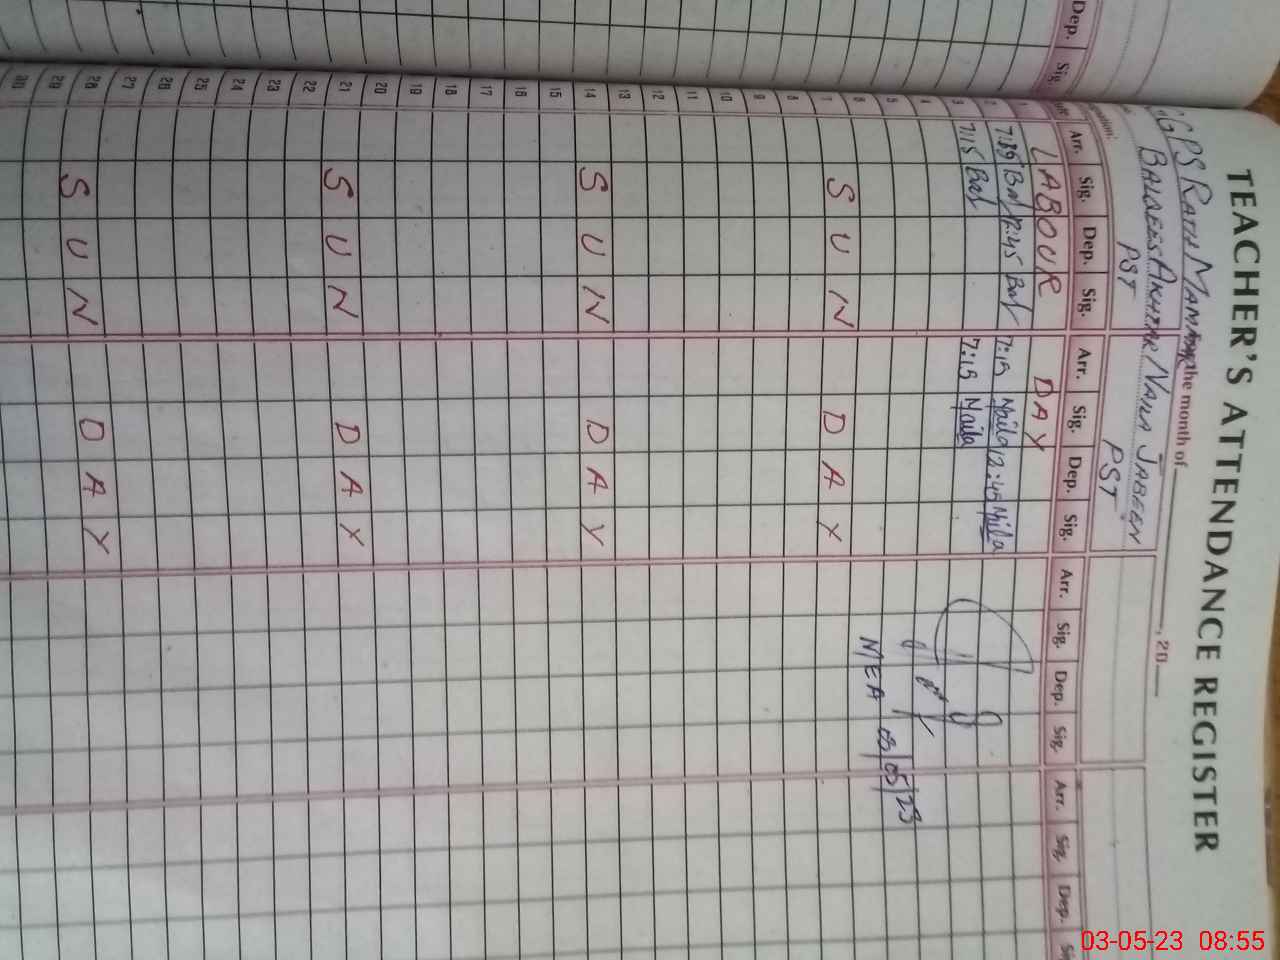 TEACHER'S ATTENDANCE REGISTER
GGPS RATH the month of , 20
BALQEES AKHTAR NAILA JABEEN
PST PST
Arr. Sig. Dep. Sig. Arr. Sig. Dep. Sig. Arr. Sig. Dep. Sig. Arr. Sig. Dep.
1 LABOUR DAY
2 Bal 12:45 Bal 7:15 Naila 12:45 Naila
3 7:15 Bal 7:15 Naila
4
5
6
7 SUN DAY
8
9
10
11
12
13
14 SUN DAY
15
16
17
18
19
20
21 SUN DAY
22
23
24
25
26
27
28 SUN DAY
29
30
MEA 03/05/23
Dep. Sig.
03-05-23 08:55